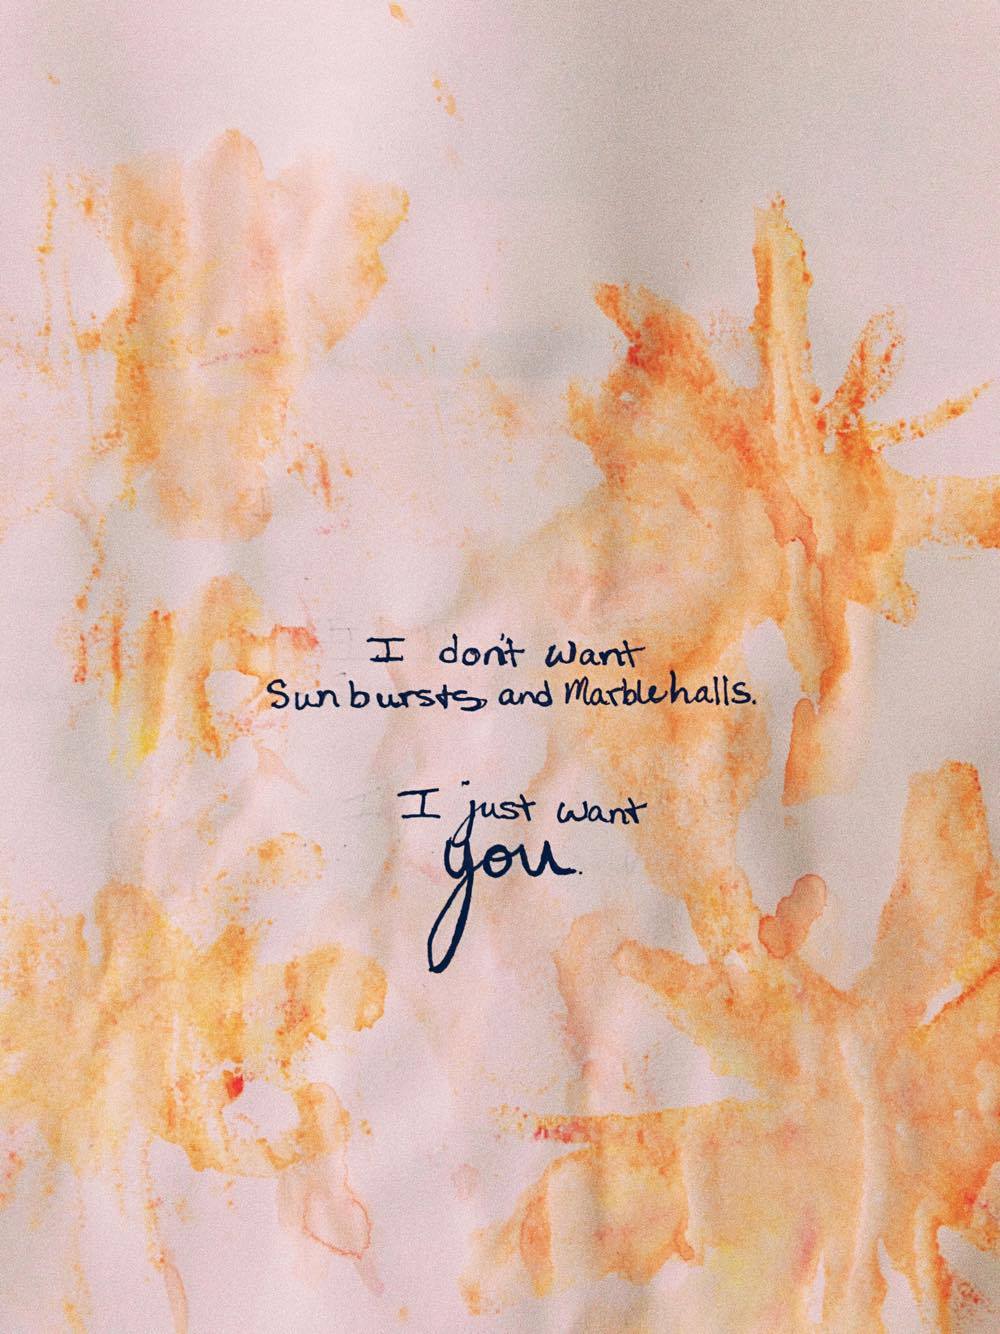 I don't want
Sunbursts, and Marble halls.
I just want
you.